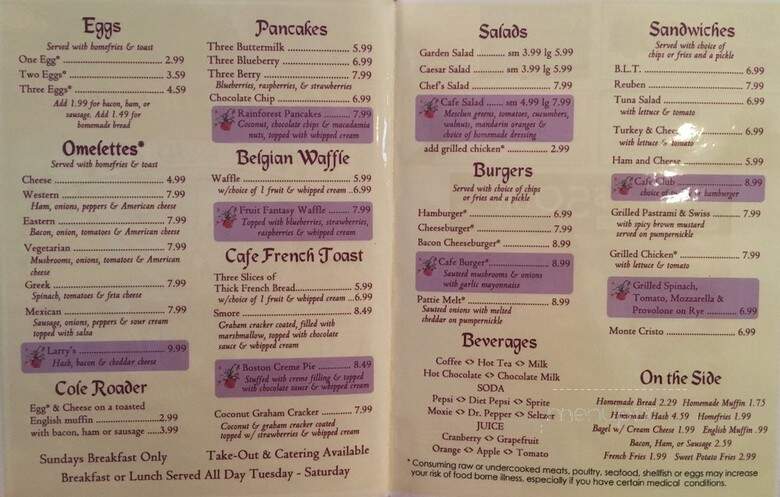 Eggs
Served with homefries & toast
One Egg* 2.99
Two Eggs* 3.59
Three Eggs* 4.59
Add 1.99 for bacon, ham, or
sausage. Add 1.49 for
homemade bread
Omelettes*
Served with homefries & toast
Cheese 4.99
Western 7.99
Ham, onions, peppers & American cheese
Eastern 7.99
Bacon, onion, tomatoes & American cheese
Vegetarian 7.99
Mushrooms, onions, tomatoes & American
cheese
Greek 7.99
Spinach, tomatoes & feta cheese
Mexican 7.99
Sausage, onions, peppers & sour cream
topped with salsa
Larry's 9.99
Hash, bacon & cheddar cheese
Cofe Roader
Egg* & Cheese on a toasted
English muffin 2.99
with bacon, ham or sausage 3.99
Pancakes
Three Buttermilk 5.99
Three Blueberry 6.99
Three Berry 7.99
Blueberries, raspberries, & strawberries
Chocolate Chip 6.99
Rainforest Pancakes 7.99
Coconut, chocolate chips & macadamia
nuts, topped with whipped cream
Belgian Waffle
Waffle 5.99
w/choice of 1 fruit & whipped cream ..6.99
Fruit Fantasy Waffle 7.99
Topped with blueberries, strawberries,
raspberries & whipped cream
Cafe French Toast
Three Slices of
Thick French Bread 5.99
w/choice of 1 fruit & whipped cream ...6.99
Smore 8.49
Graham cracker coated, filled with
marshmallow, topped with chocolate
sauce & whipped cream
Boston Creme Pie 8.49
Stuffed with creme filling & topped
with chocolate sauce & whipped cream
Coconut Graham Cracker 7.99
Coconut & graham cracker coated
topped w/ strawberries & whipped cream
Sundays Breakfast Only
Take-Out & Catering Available
Breakfast or Lunch Served All Day Tuesday - Saturday
Salads
Garden Salad sm 3.99 lg 5.99
Caesar Salad sm 3.99 lg 5.99
Chef's Salad 7.99
Cafe Salad sm 4.99 lg 7.99
Mesclun greens, tomatoes, cucumbers,
walnuts, mandarin oranges &
choice of homemade dressing
add grilled chicken* 2.99
Burgers
Served with choice of chips
or fries and a pickle
Hamburger* 6.99
Cheeseburger* 7.99
Bacon Cheeseburger* 8.99
Cafe Burger* 8.99
Sauteed mushrooms & onions
with garlic mayonnaise
Pattie Melt* 8.99
Sauteed onions with melted
cheddar on pumpernickle
Beverages
Coffee <> Hot Tea <> Milk
Hot Chocolate <> Chocolate Milk
SODA
Pepsi <> Diet Pepsi <> Sprite
Moxie <> Dr. Pepper <> Seltzer
JUICE
Cranberry <> Grapefruit
Orange <> Apple <> Tomato
Sandwiches
Served with choice of
chips or fries and a pickle
B.L.T. 6.99
Reuben 7.99
Tuna Salad 6.99
with lettuce & tomato
Turkey & Cheese 6.99
with lettuce & tomato
Ham and Cheese 5.99
Cafe Club 8.99
choice of hamburger
Grilled Pastrami & Swiss 7.99
with spicy brown mustard
served on pumpernickle
Grilled Chicken* 7.99
with lettuce & tomato
Grilled Spinach,
Tomato, Mozzarella &
Provolone on Rye 6.99
Monte Cristo 6.99
On the Side
Homemade Bread 2.29 Homemade Muffin 1.75
Homemade Hash 4.59 Homefries 1.99
Bagel w/ Cream Cheese 1.99 English Muffin .99
Bacon, Ham, or Sausage 2.59
French Fries 1.99 Sweet Potato Fries 2.99
* Consuming raw or undercooked meats, poultry, seafood, shellfish or eggs may increase
your risk of food borne illness, especially if you have certain medical conditions.